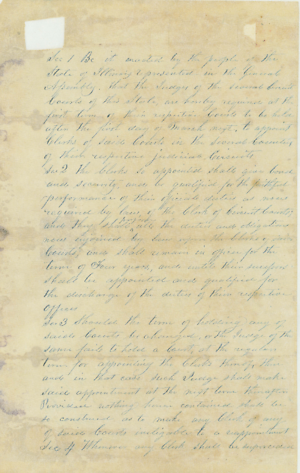 Sec 1 Be it enacted by the people of the
State of Illinois represented in the General
Assembly, that the Judges of the several Circuit
Courts of this State, are hereby required at the
first term of their respective Courts to be holden
after the first day of next, to appoint
Clerks of said Courts in the several Counties
of their respective judicial Circuits
Sec 2 The Clerks so appointed shall give bond
and security, and be qualified for the faithful
performance of their official duties as now
required by law of the Clerks of Circuit Courts,
and they shall all the duties and obligations
now enjoined by law upon the Clerks of said
Courts and shall remain in office for the
term of Four years, and until their successors
shall be appointed and qualified for
the discharge of the duties of their respective
offices
Sec 3 Should the term of holding any of
said Courts be changed, or the Judge of the
same fail to hold a Court, at the regular
time for appointing the Clerk thereof, then
and in that case such Judge shall make
said appointment at the next term thereafter
Provided nothing herein contained shall be
so construed as to make any Clerk of any
of said Courts ineligible to re appointment
Sec 4 Whenever any Clerk shall be